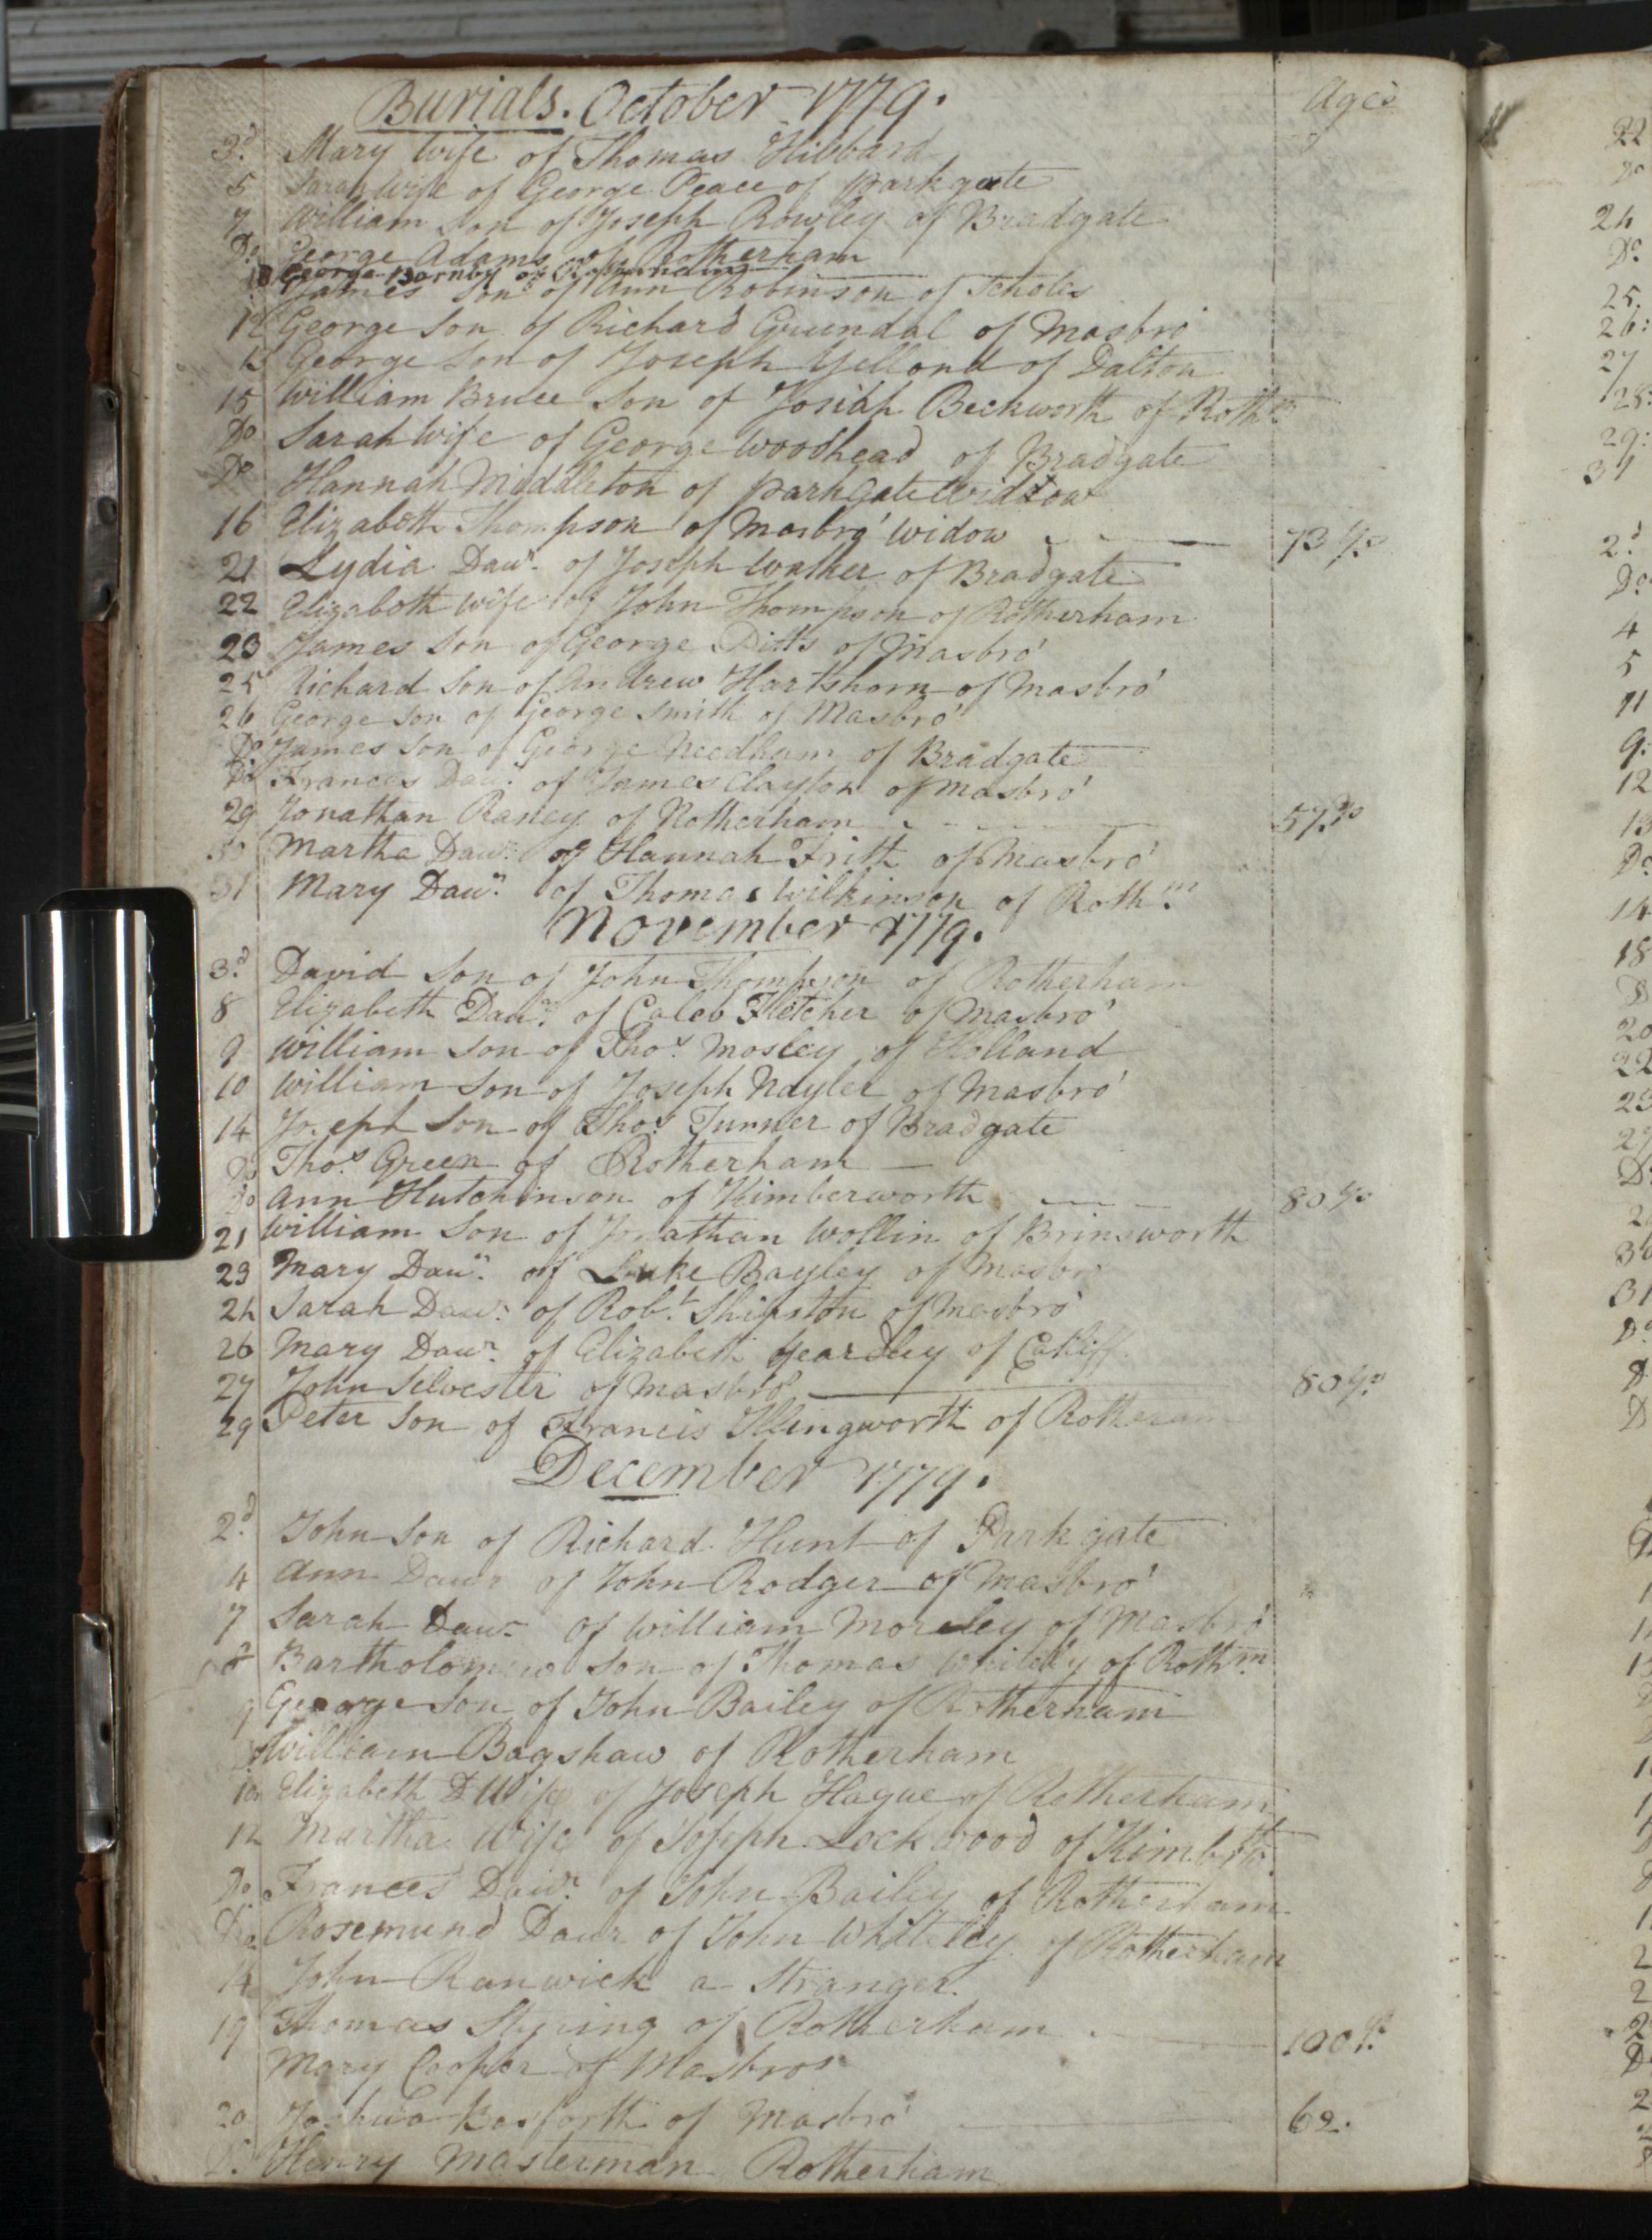 Burials. October 1779. Ages
3.d Mary wife of Thomas Hibbard
5 Sarah wife of George Peace of parkgate
7 William Son of Joseph Rowley of Bradgate
Do George Adams of Rotherham
10 George Barnby of
James Son of Ann Robinson of Scholes
12 George Son of Richard Grundal of Masbro'
13 George Son of Joseph Yelland of Dalton
15 William Bruce Son of Josiah Beckworth of Roth.m
Do Sarah wife of George Woodhead of Bradgate
Do Hannah Middleton of parkgate Widdow
16 Elizabeth Thompson of Masbro' widow 73 Y.s
21 Lydia Daur. of Joseph Walker of Bradgate
22 Elizabeth wife of John Thompson of Rotherham
23 James Son of George Pitts of Masbro'
25 Richard Son of Andrew Hartshorn of Masbro'
26 George Son of George Smith of Masbro'
Do James Son of George Needham of Bradgate
Do Frances Daur. of James Clayton of Masbro'
29 Jonathan Raney of Rotherham 57 Y.s
30 Martha Daur. of Hannah Frith of Masbro'
31 Mary Daur. of Thomas Wilkinson of Roth.m
November 1779.
3.d David Son of John Thompson of Rotherham
8 Elizabeth Daur. of Caleb Fletcher of Masbro'
9 William Son of Thos. Mosley of Holland
10 William Son of Joseph Nayler of Masbro'
14 Joseph Son of Thos. Turner of Bradgate
Do Thos. Green of Rotherham
Do Ann Hutchinson of Kimberworth 80 Y.s
21 William Son of Jonathan Wollin of Brinsworth
23 Mary Daur. of Luke Bayley of Masbro'
24 Sarah Daur. of Robt. Shipston of Masbro'
26 Mary Daur. of Elizabeth Yeardley of Catliff
27 John Selvester of Masbro' 80 Y.s
29 Peter Son of Francis Illingworth of Rotheram
December 1779.
2.d John Son of Richard Hunt of Parkgate
4 Ann Daur of John Rodger of Masbro'
7 Sarah Daur. of William Moreley of Masbro'
8 Bartholomew Son of Thomas Whiteley of Roth.m
9 George Son of John Bailey of Rotherham
William Bagshaw of Rotherham
10 Elizabeth D Wife of Joseph Hague of Rotherham
12 Martha Wife of Joseph Lockwood of Kimb.th
Do Frances Daur. of John Bailey of Rotherham
Do Rosemund Daur of John Whiteley of Rotherham
14 John Ranwick a Stranger.
19 Thomas Styring of Rotherham 100 Y.s
Mary Cooper of Masbro'
20 Joshua Bosforth of Masbro' 62.
Do Henry Masterman Rotherham